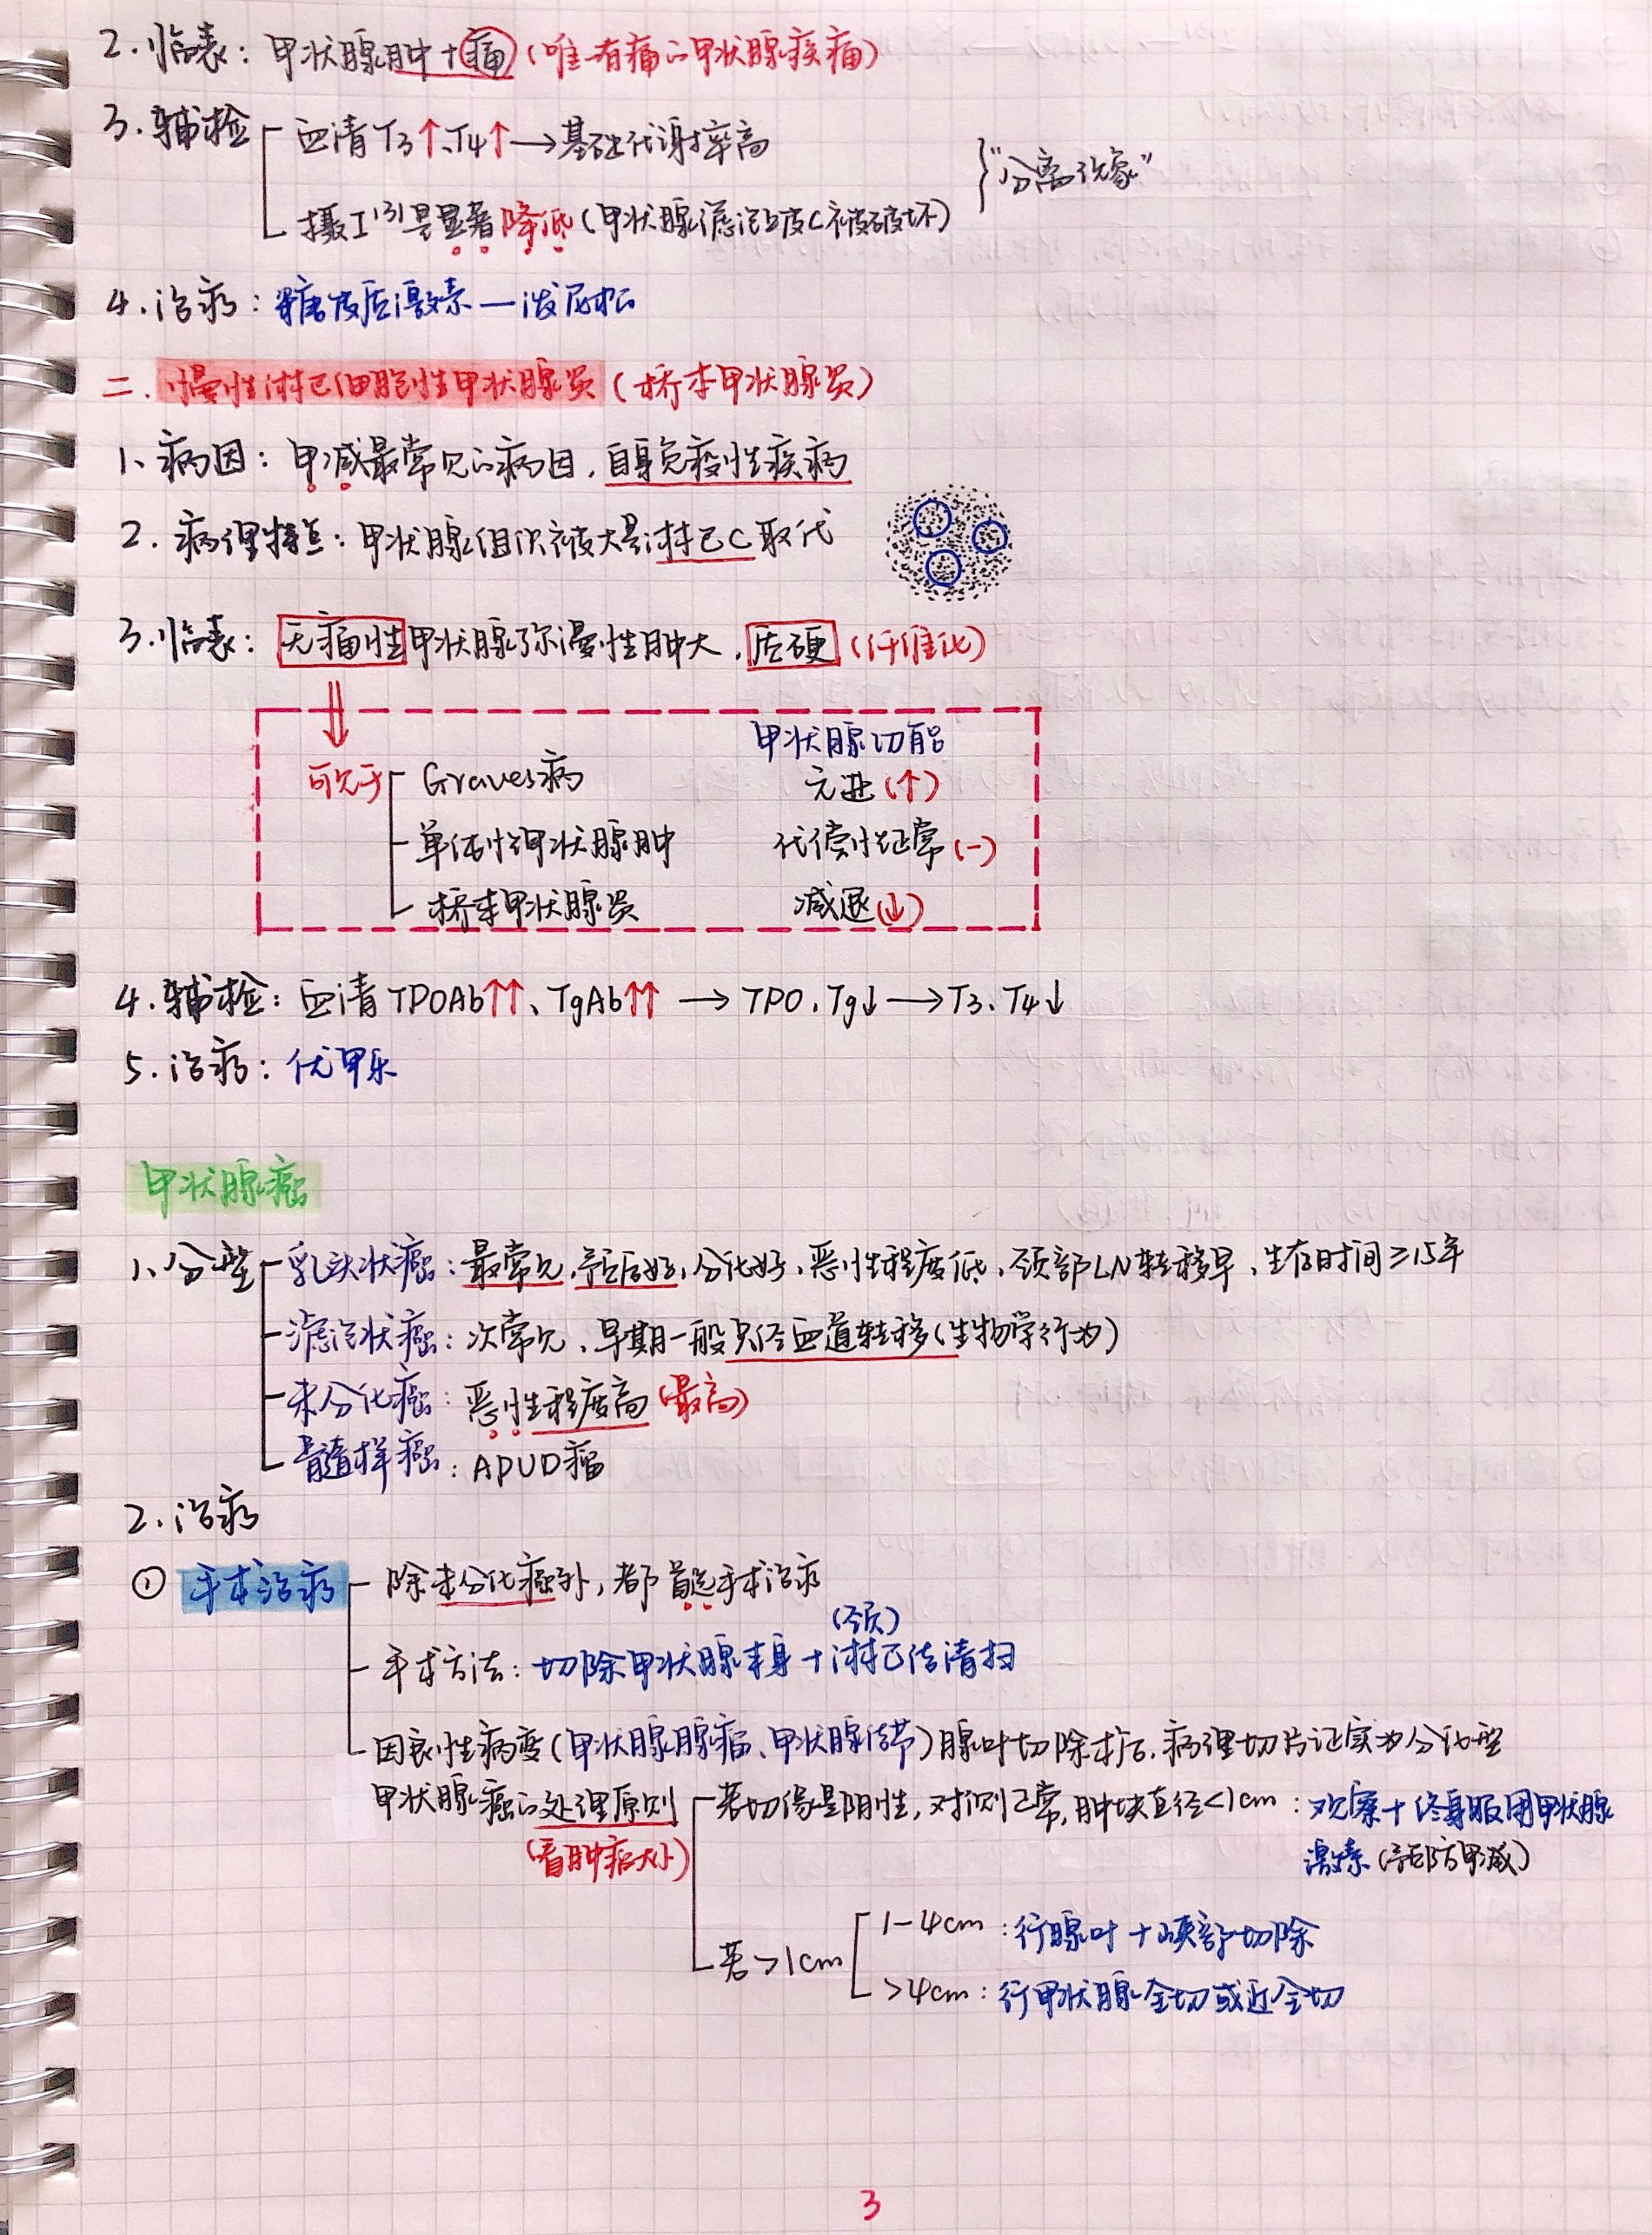 2.临表：甲状腺肿+痛(唯一有痛的甲状腺疾病)
3.辅检 血清T3↑、T4↑→基础代谢率高
摄I131量显著降低(甲状腺滤泡上皮C被破坏)
}"分离现象"
4.治疗：糖皮质激素—泼尼松
二.慢性淋巴细胞性甲状腺炎(桥本甲状腺炎)
1、病因：甲减最常见的病因，自身免疫性疾病
2.病理特点：甲状腺组织被大量淋巴C取代
3.临表：无痛性甲状腺弥漫性肿大，质硬(纤维化)
甲状腺功能
可见于 Graves病 亢进(↑)
单纯性甲状腺肿 代偿性正常(-)
桥本甲状腺炎 减退(↓)
4.辅检：血清TPOAb↑↑、TgAb↑↑→TPO、Tg↓→T3、T4↓
5.治疗：优甲乐
甲状腺癌
1、分型 乳头状癌：最常见，预后好，分化好，恶性程度低，颈部LN转移早，生存时间≥15年
滤泡状癌：次常见，早期一般只经血道转移(生物学行为)
未分化癌：恶性程度高(最高)
髓样癌：APUD瘤
2.治疗
① 手术治疗 除未分化癌外，都首选手术治疗
(颈)
手术方法：切除甲状腺本身+淋巴结清扫
因良性病变(甲状腺腺瘤、甲状腺结节)腺叶切除术后，病理切片证实为分化型
甲状腺癌的处理原则 若切缘是阴性，对侧正常，肿块直径<1cm：观察+终身服用甲状腺
(看肿瘤大小) 激素(预防甲减)
1-4cm：行腺叶+峡部切除
若>1cm
>4cm：行甲状腺全切或近全切
3